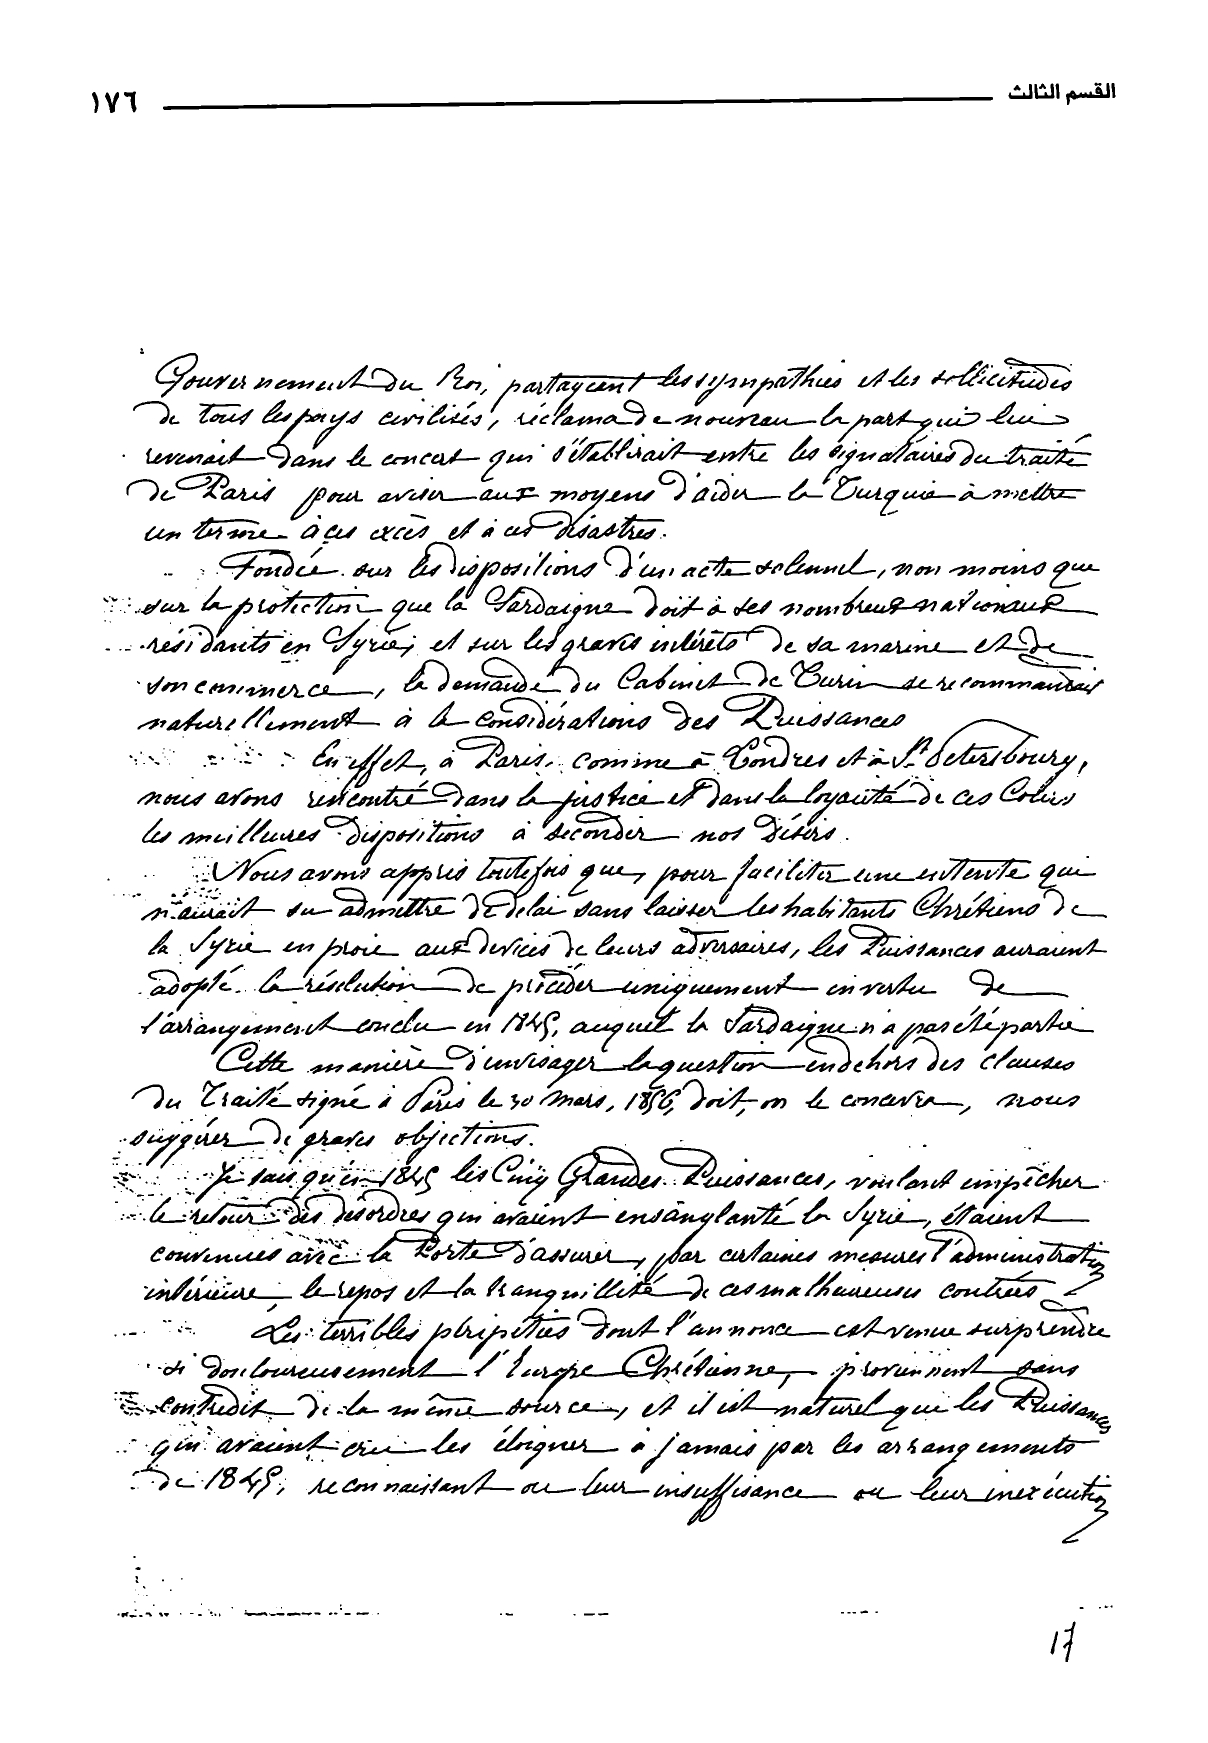 القسم الثالث
١٧٦
Gouvernement du Roi, partageant les sympathies et les sollicitudes
de tous les pays civilisés, réclama de nouveau la part qui lui
revenait dans le concert qui s'établirait entre les signataires du traité
de Paris pour aviser aux moyens d'aider la Turquie à mettre
un terme à ces excès et à ces désastres.
Fondée sur les dispositions d'un acte solennel, non moins que
sur la protection que la Sardaigne doit à ses nombreux nationaux
résidants en Syrie, et sur les graves intérêts de sa marine et de
son commerce, la demande du Cabinet de Turin se recommandait
naturellement à la considérations des Puissances
En effet, à Paris, comme à Londres et à St. Petersbourg,
nous avons rencontré dans la justice et dans la loyauté de ces Cours
les meilleures dispositions à seconder nos désirs.
Nous avons appris toutefois que, pour faciliter une entente qui
n'aurait su admettre de delai sans laisser les habitants Chrétiens de
la Syrie en proie aux de leurs adversaires, les Puissances auraient
adopté la résolution de procéder uniquement en vertu de
l'arrangement conclu en 1845, auquel la Sardaigne n'a pas été partie
Cette manière d'envisager la question en dehors des clauses
du Traité signé à Paris le 30 Mars, 1856, doit, on le concevra, nous
suggérer de graves objections.
Je sais qu'en 1845 les Cinq Grandes Puissances, voulant empêcher
le retour des désordres qui avaient ensanglanté la Syrie, étaient
convenues avec la Porte d'assurer, par certaines mesures l'administration
intérieure, le repos et la tranquillité de ces malheureuses contrées
Les terribles péripéties dont l'annonce est venue surprendre
si douloureusement l'Europe Chrétienne, proviennent sans
contredit de la même source, et il est naturel que les Puissances
qui avaient cru les éloigner à jamais par les arrangements
de 1845, reconnaissant ou leur insuffisance ou leur inexécution
17